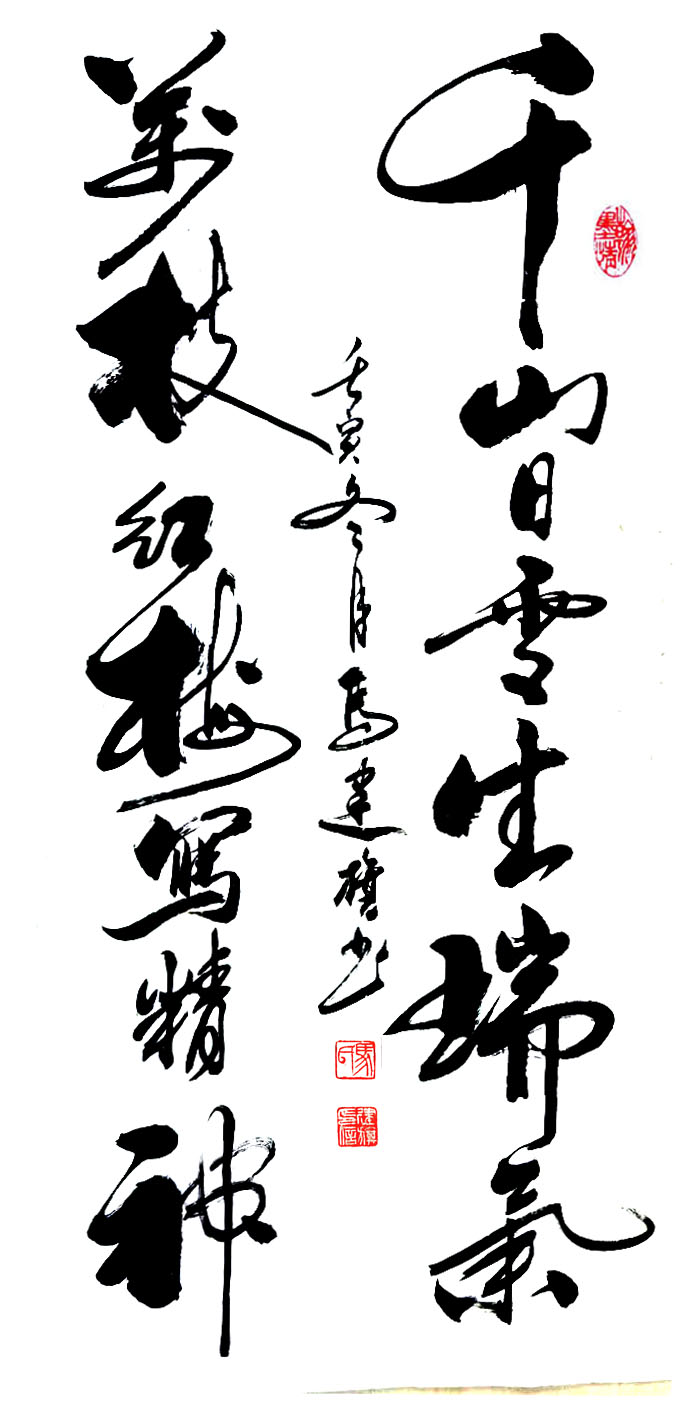 千山白雪生瑞氣
萬枝红梅寫精神
壬寅冬月馬建旗书